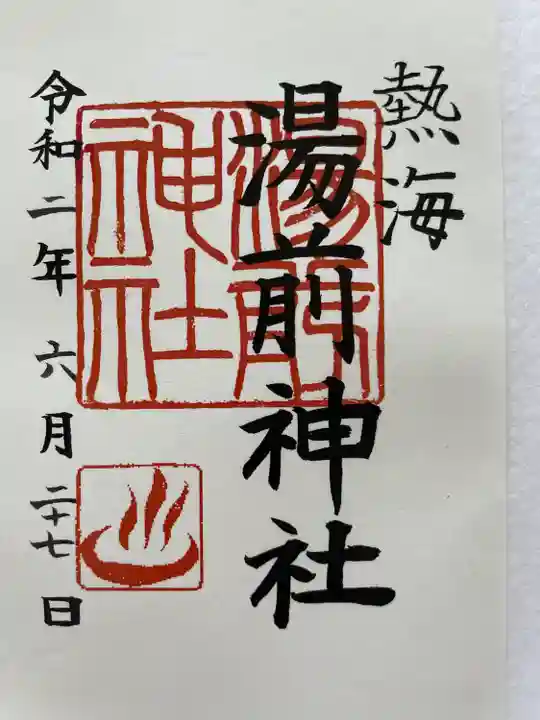 熱海
湯前神社
湯前神社
令和二年 六月二十七日